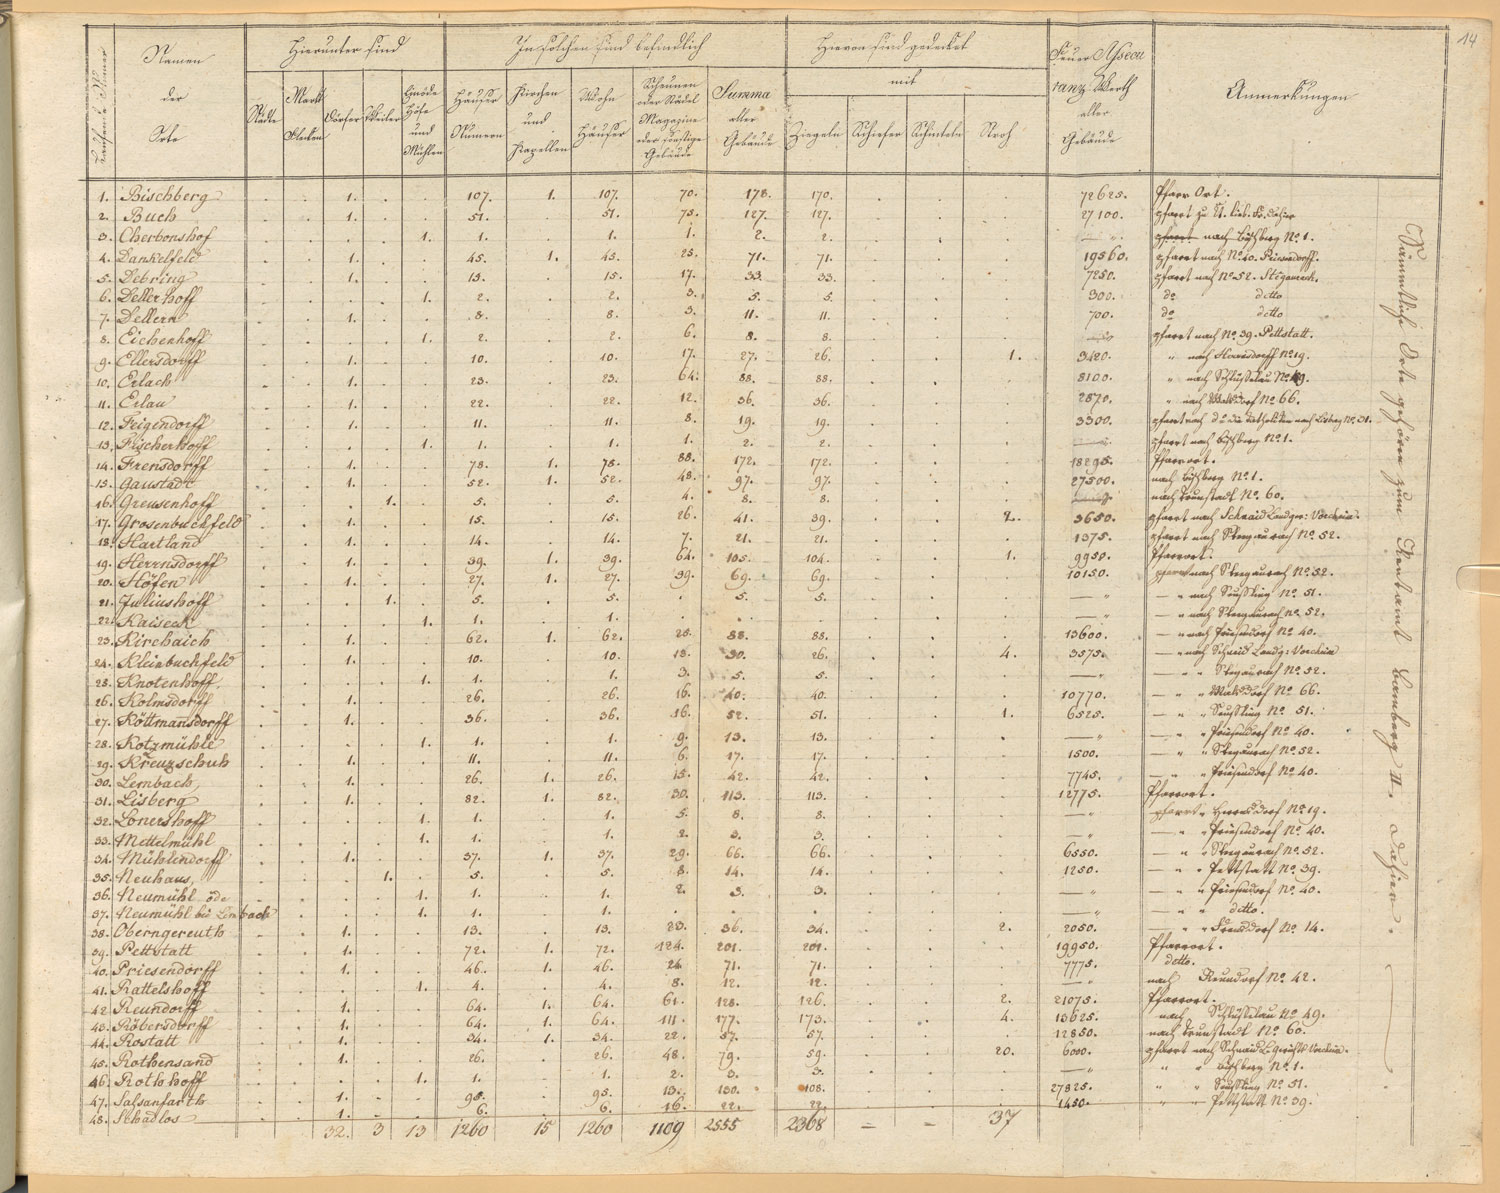 14
Laufende Numer | Namen der Orte | Hierunter sind | In solchen sind befindlich | Hievon sind gedecket mit | Feuer Assecuranz Werth aller Gebäude | Anmerkungen
Städte | Markt Flecken | Dörfer | Weiler | Einöde Höfe und Mühlen | Häuser Numern | Kirchen und Kapellen | Wohn Häuser | Scheunen oder Städel Magazine oder sonstige Gebäude | Summa aller Gebäude | Ziegeln | Schiefer | Schindeln | Stroh
1. Bischberg . . 1. . . 107. 1. 107. 70. 178. 170. . . . 72625. Pfarr Ort.
2. Buch . . 1. . . 51. . 51. 75. 127. 127. . . . 27100. pfarrt zu
3. Cherbonshof . . . . 1. 1. . 1. 1. 2. 2. . . . — pfarrt nach Bischberg No 1.
4. Dankelfeld . . 1. . . 45. 1. 45. 25. 71. 71. . . . 19560. pfarrt nach No 40. Priesendorff.
5. Debring . . 1. . . 15. . 15. 17. 33. 33. . . . 7250. pfarrt nach No 52. Stegaurach.
6. Dellerhoff . . . . 1. 2. . 2. 3. 5. 5. . . . 300. do ditto
7. Dellern . . 1. . . 8. . 8. 3. 11. 11. . . . 700. do ditto
8. Eichenhoff . . . . 1. 2. . 2. 6. 8. 8. . . . — pfarrt nach No 39. Pettstatt.
9. Ellersdorff . . 1. . . 10. . 10. 17. 27. 26. . . 1. 3420. " nach Herrnsdorff No 19.
10. Erlach . . 1. . . 23. . 23. 64. 88. 88. . . . 8100. " nach Schlüsselau No 49.
11. Erlau . . 1. . . 22. . 22. 12. 36. 36. . . . 2870. " nach Walsdorf No 66.
12. Feigendorff . . 1. . . 11. . 11. 8. 19. 19. . . . 3300. pfarrt nach die Katholiken nach Lisberg No 31.
13. Fischerhoff . . . . 1. 1. . 1. 1. 2. 2. . . . — pfarrt nach Bischberg No 1.
14. Frensdorff . . 1. . . 78. 1. 78. 88. 172. 172. . . . 18295. Pfarrort.
15. Gaustadt . . 1. . . 52. 1. 52. 45. 97. 97. . . . 27500. nach Bischberg No 1.
16. Greusenhoff . . . 1. . 5. . 5. 4. 8. 8. . . . — nach Trunstadt No 60.
17. Grosenbuchfeld . . 1. . . 15. . 15. 26. 41. 39. . . 2. 3650. pfarrt nach Schnaid Landger: Vorcheim.
18. Hartland . . 1. . . 14. . 14. 7. 21. 21. . . . 1375. pfarrt nach Stegaurach No 52.
19. Herrnsdorff . . 1. . . 39. 1. 39. 64. 105. 104. . . 1. 9950. Pfarrort.
20. Höfen . . 1. . . 27. 1. 27. 39. 69. 69. . . . 10150. pfarrt nach Stegaurach No 52.
21. Juliushoff . . . 1. . 5. . 5. . 5. 5. . . . — " — " nach Seussling No 51.
22. Kaiseck . . . . 1. 1. . 1. . . . . . . — " nach Stegaurach No 52.
23. Kirchaich . . 1. . . 62. 1. 62. 25. 88. 88. . . . 13600. — " nach Priesendorf No 40.
24. Kleinbuchfeld . . 1. . . 10. . 10. 18. 30. 26. . . 4. 3575. — " nach Schnaid Landg: Vorcheim
25. Knotenhoff . . . . 1. 1. . 1. 3. 5. 5. . . . — " — " " Stegaurach No 52.
26. Kolmsdorff . . 1. . . 26. . 26. 16. 40. 40. . . . 10770. — " " Walsdorf No 66.
27. Köttmansdorff . . 1. . . 36. . 36. 16. 52. 51. . . 1. 6525. — " " Seussling No 51.
28. Kotzmühle . . . . 1. 1. . 1. 9. 13. 13. . . . — " — " " Priesendorf No 40.
29. Kreuzschuh . . 1. . . 11. . 11. 6. 17. 17. . . . 1500. — " " Stegaurach No 52.
30. Lembach . . 1. . . 26. 1. 26. 15. 42. 42. . . . 7745. — " " Priesendorf No 40.
31. Lisberg . . 1. . . 82. 1. 82. 30. 113. 113. . . . 12775. Pfarrort.
32. Lonershoff . . . . 1. 1. . 1. 5. 8. 8. . . . — " pfarrt " Herrnsdorf No 19.
33. Mettelmühl . . . . 1. 1. . 1. 2. 3. 3. . . . — " — " " Priesendorf No 40.
34. Mühlendorff . . 1. . . 37. 1. 37. 29. 66. 66. . . . 6550. — " " Stegaurach No 52.
35. Neuhaus, . . . 1. . 5. . 5. 8. 14. 14. . . . 1250. — " " Pettstatt No 39.
36. Neumühl öde . . . . 1. 1. . 1. 2. 3. 3. . . . — " — " " Priesendorf No 40.
37. Neumühl bei Lembach . . . 1. 1. . 1. . . . . . . — " — " " ditto.
38. Oberngereuth . . 1. . . 13. . 13. 23. 36. 34. . . 2. 2050. — " " Frensdorf No 14.
39. Pettstatt . . 1. . . 72. 1. 72. 124. 201. 201. . . . 19950. Pfarrort.
40. Priesendorff . . 1. . . 46. 1. 46. 24. 71. 71. . . . 7775. ditto.
41. Rattelshoff . . . . 1. 4. . 4. 8. 12. 12. . . . — " nach Reundorf No 42.
42. Reundorff . . 1. . . 64. 1. 64. 61. 128. 126. . . 2. 21075. Pfarrort.
43. Röbersdorff . . 1. . . 64. 1. 64. 111. 177. 173. . . 4. 13625. nach Schlüsselau No 49.
44. Rostatt . . 1. . . 34. 1. 34. 22. 57. 57. . . . 12850. nach Trunstadt No 60.
45. Rothensand . . 1. . . 26. . 26. 48. 79. 59. . . 20. 6000. pfarrt nach Schnaid L. Gerichts Vorcheim.
46. Rothhoff . . . . 1. 1. . 1. 2. 3. 3. . . . " " Bischberg No 1.
47. Salsanfarth . . 1. . . 95. . 95. 13. 130. 108. . . . 27825. " " Seussling No 51.
48. Schadlos . . 1. . . 6. . 6. 16. 22. 22. . . . 1450. " " Pettstatt No 39.
32. 3 13 1260 15 1260 1109 2555 2368 — — 37
Sämmtliche Orte gehören zum Rentamt Bamberg II. dahier.